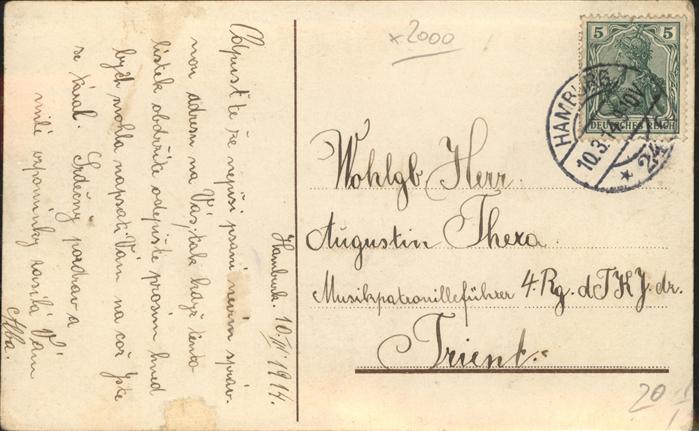 x2000
5 5
DEUTSCHES REICH
HAMBURG
10.3.14. 10V
* 24
Odpusťte že nepíši psaní nevím správ.
nou adresu na Vás, tak když tento
lístek obdržíte odepište prosím hned
bych mohla napsati Vám na což jste
se tázal. Srdečný pozdrav a
milé vzpomínky zasílá Vám
Alba.
Hamburk. 10/III 1914.
Wohlgb Herr.
Augustin Thera
Musikpatronilleführer 4. Rg. d TKJ. dr.
Trient.
20